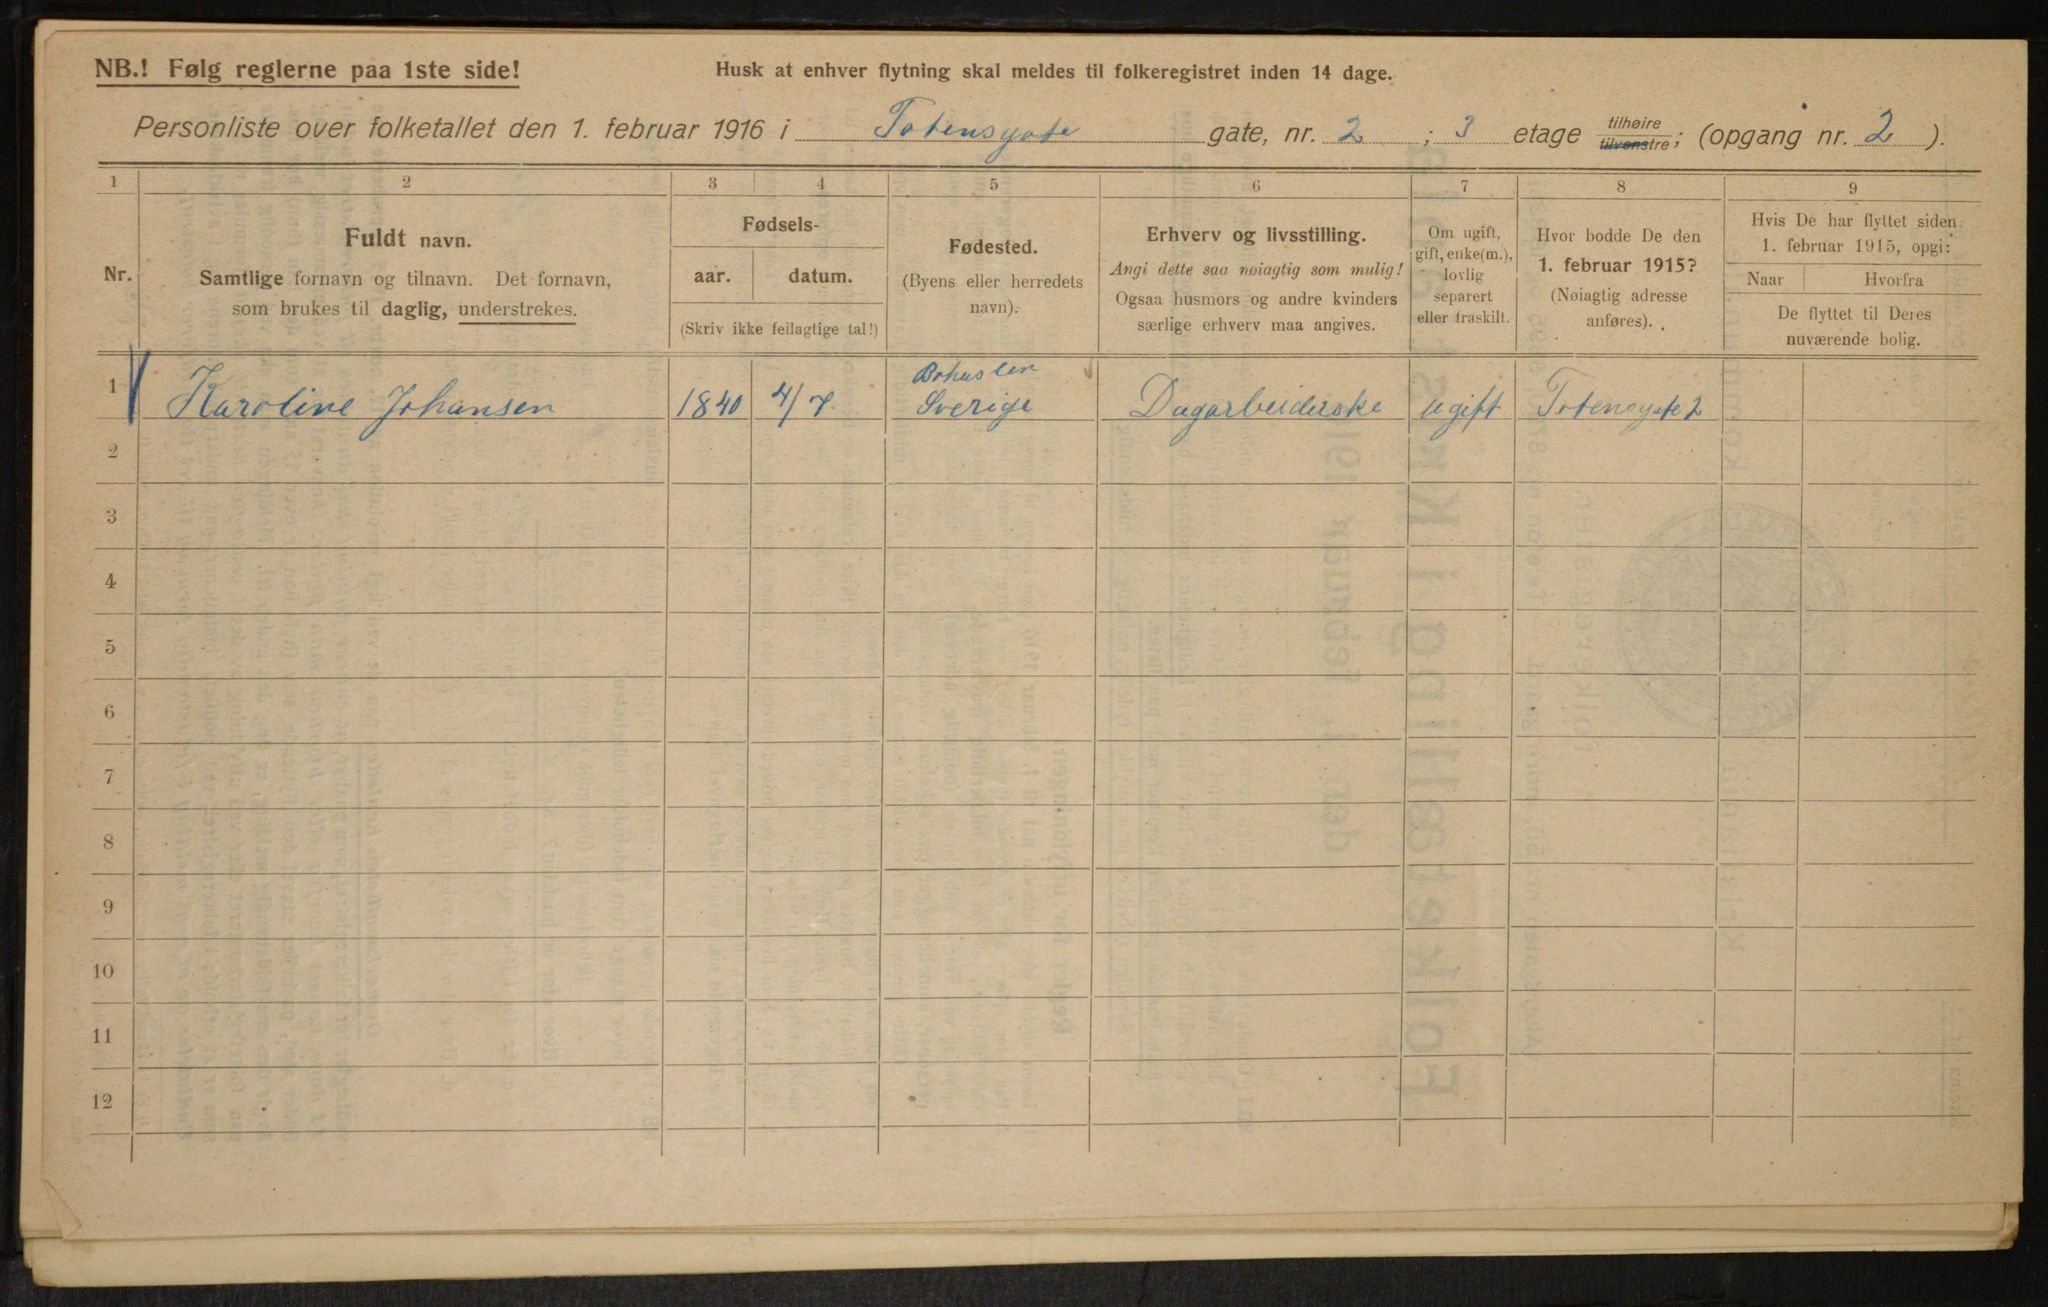 NB.! Følg reglerne paa 1ste side!
Husk at enhver flytning skal meldes til folkeregistret inden 14 dage.
Personliste over folketallet den 1. februar 1916 i Totensgate gate, nr. 2 ; 3 etage tilhøire tilvenstre; (opgang nr. 2 ).
1 2 3 4 5 6 7 8 9
Nr.
Fuldt navn.
Samtlige fornavn og tilnavn. Det fornavn,
som brukes til daglig, understrekes.
Fødsels-
aar. datum.
(Skriv ikke feilagtige tal!)
Fødested.
(Byens eller herredets
navn).
Erhverv og livsstilling.
Angi dette saa nøiagtig som mulig!
Ogsaa husmors og andre kvinders
særlige erhverv maa angives.
Om ugift,
gift, enke(m.),
lovlig
separert
eller fraskilt.
Hvor bodde De den
1. februar 1915?
(Nøiagtig adresse
anføres).
Hvis De har flyttet siden
1. februar 1915, opgi:
Naar Hvorfra
De flyttet til Deres
nuværende bolig.
Bohuslen
1 Karoline Johansen 1840 4/7 Sverige Dagarbeiderske ugift Totensgate 2
2
3
4
5
6
7
8
9
10
11
12